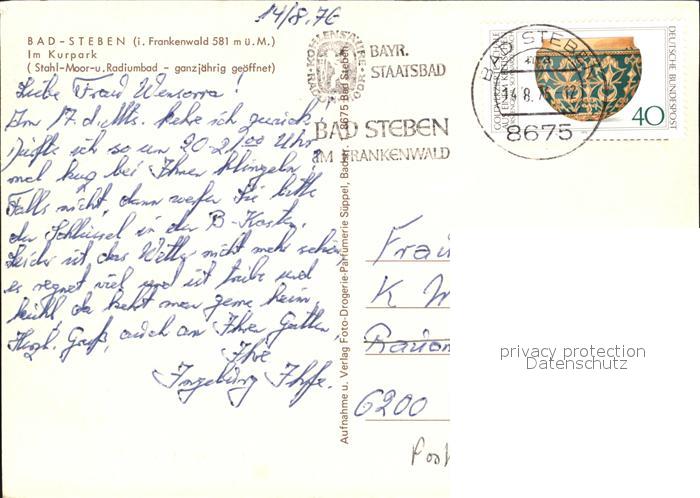 14/8. 76
BAD-STEBEN (i. Frankenwald 581 m ü. M.)
Im Kurpark
(Stahl-Moor-u. Radiumbad - ganzjährig geöffnet)
Liebe Frau
Am 17. d. Mts. kehre ich zurück.
Dürfte ich so um 20-21,00 Uhr
mal kurz bei Ihnen klingeln?
Falls nicht, dann werfen Sie bitte
den Schlüssel in den B-Kasten.
Leider ist das Wetter nicht mehr schön
es regnet viel und ist trübe und
kühl da kehrt man gerne heim.
Herzl. Gruß, auch an Ihren Gatten,
Ihre
Ingeburg
BAYR.
STAATSBAD
BAD STEBEN
IM FRANKENWALD
BAD STEBEN
14.8.76
8675
DEUTSCHE BUNDESPOST
40
Aufnahme u. Verlag Foto-Drogerie-Parfümerie Süppel, Badstr. 8675 Bad Steben
Frau
K W
6200
Post
privacy protection
Datenschutz